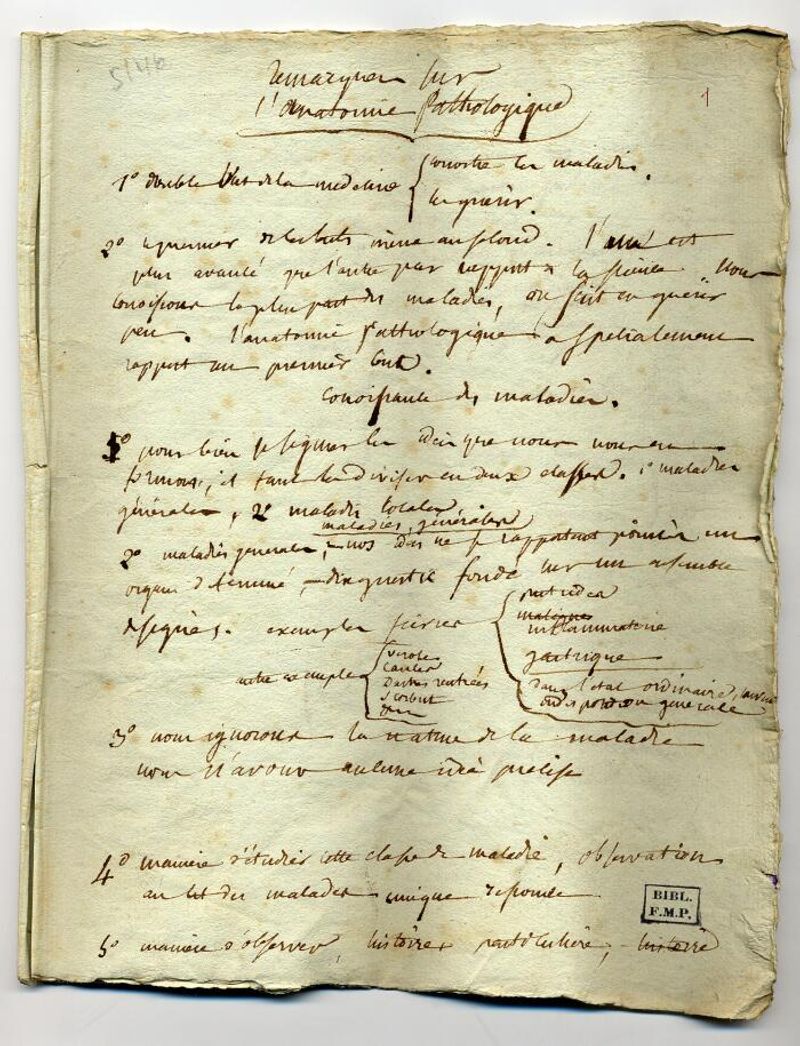 5146
1
remarques sur
l'anatomie Pathologique
1° double but de la medecine { conoitre les maladies.
les guerir.
2° le premier de les buts mene au second. l'un est
plus avancé que l'autre par rapport a la sience. nous
conoissons la plus part des maladies, on scait en guerir
peu. l'anatomie Pathologique a spécialement
rapport au premier but.
conoissance des maladies.
1° pour bien les idées que nous nous en
formons, il faut les diviser en deux classes. 1° maladies
générales, 2° maladies locales
maladies générales
2° maladies generales, nos idées ne se rapportent point a un
organe determiné, - diagnostic fondé sur un assemblage
de signes. exemples fievres { putrides
malignes
inflammatoire
gastrique
dans l'etat ordinaire,
indisposition générale
autre exemple { verole
cancer
Dartres rentrées
scorbut
3° nous ignorons la nature de la maladie
nous n'avons aucune idée précise
4° maniere d'étudier cette classe de maladie, observation
au lit des malades unique
5° maniere d'observer, histoires particulière, histoire
BIBL.
F.M.P.